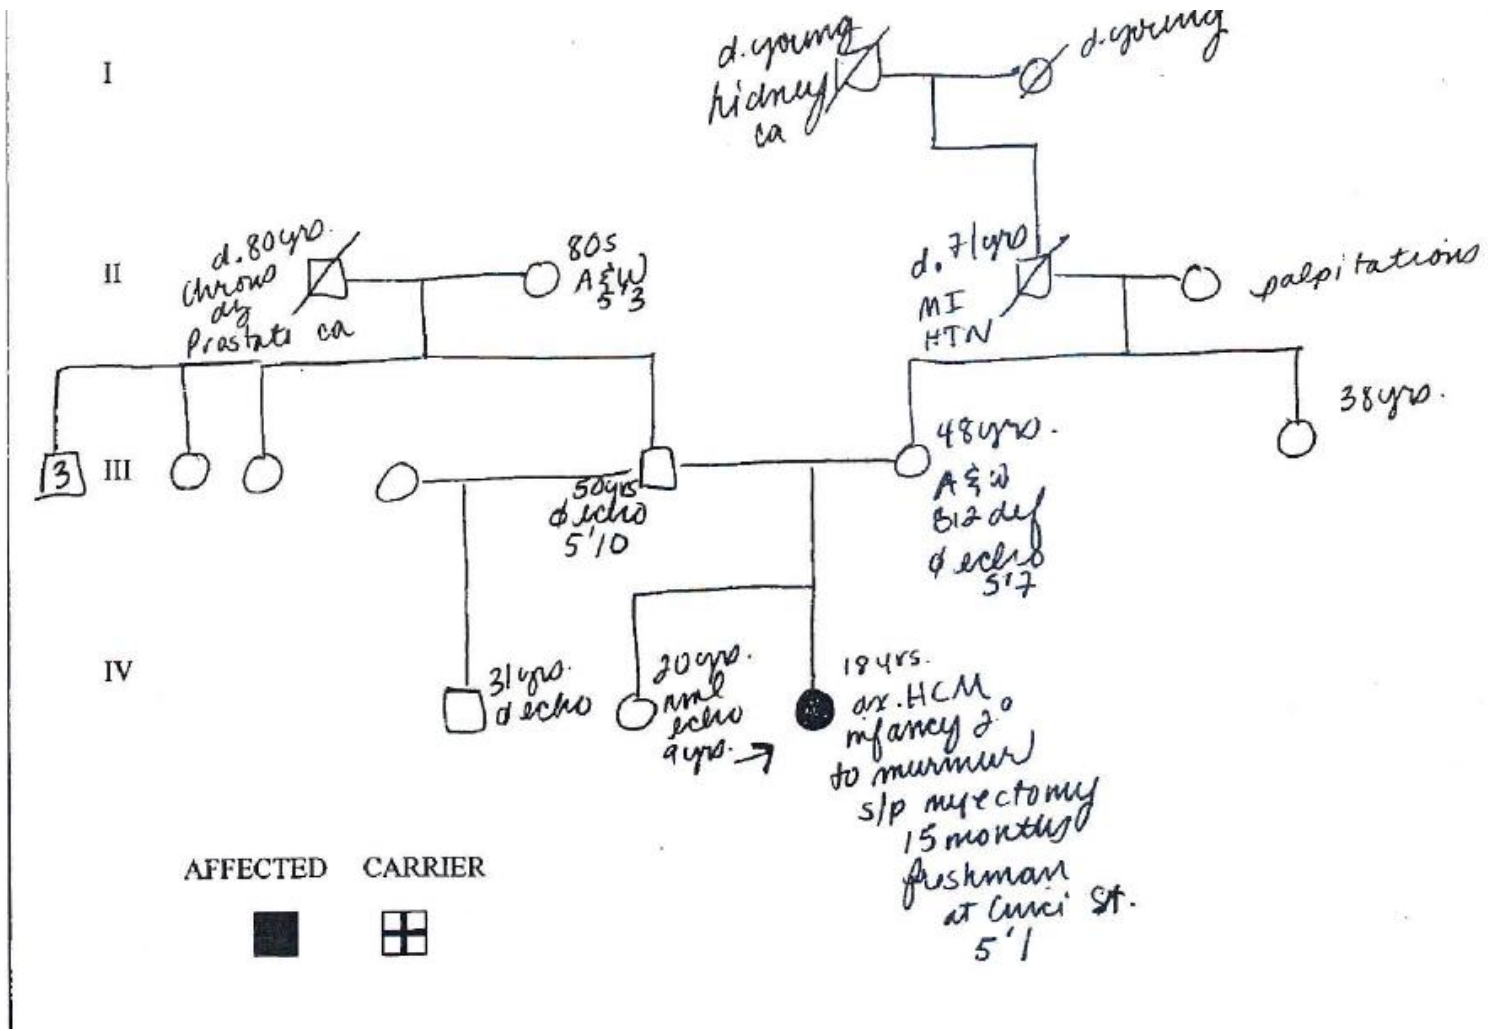 I
d. young
kidney
ca
d. young
II
d. 80 yrs.
Chrons
dz
Prostate ca
80s
A & W
5'3
d. 71 yrs
MI
HTN
palpitations
III
3
50 yrs
ø echo
5'10
48 yrs.
A & W
B12 def
ø echo
5'7
38 yrs.
IV
31 yrs.
ø echo
20 yrs.
nml
echo
9 yrs.
18 yrs.
dx. HCM
infancy 2°
to murmur
s/p myectomy
15 months
freshman
at St.
5'1
AFFECTED CARRIER